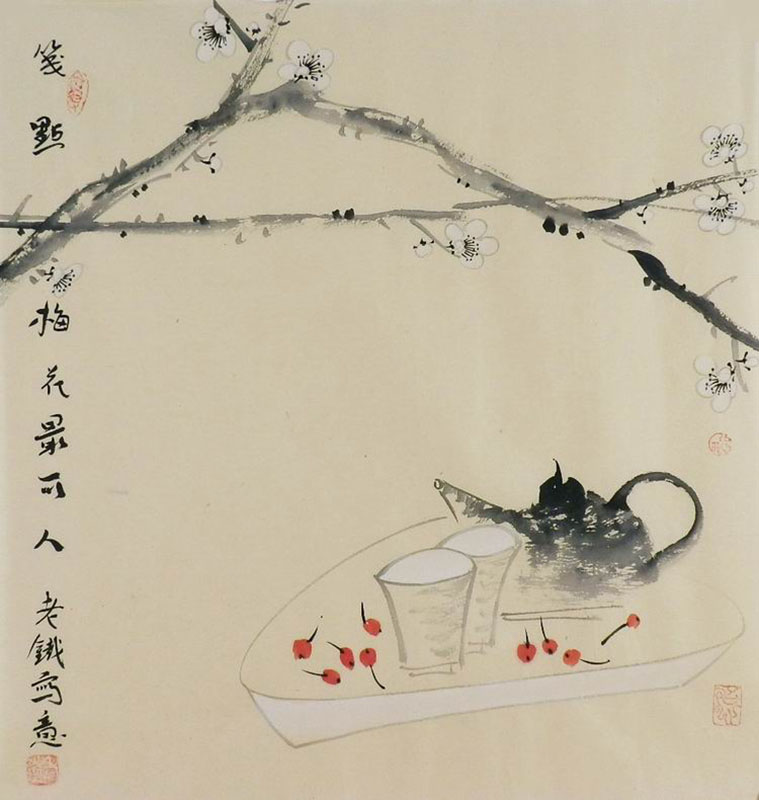 幾點梅花最可人 老鐵寫意